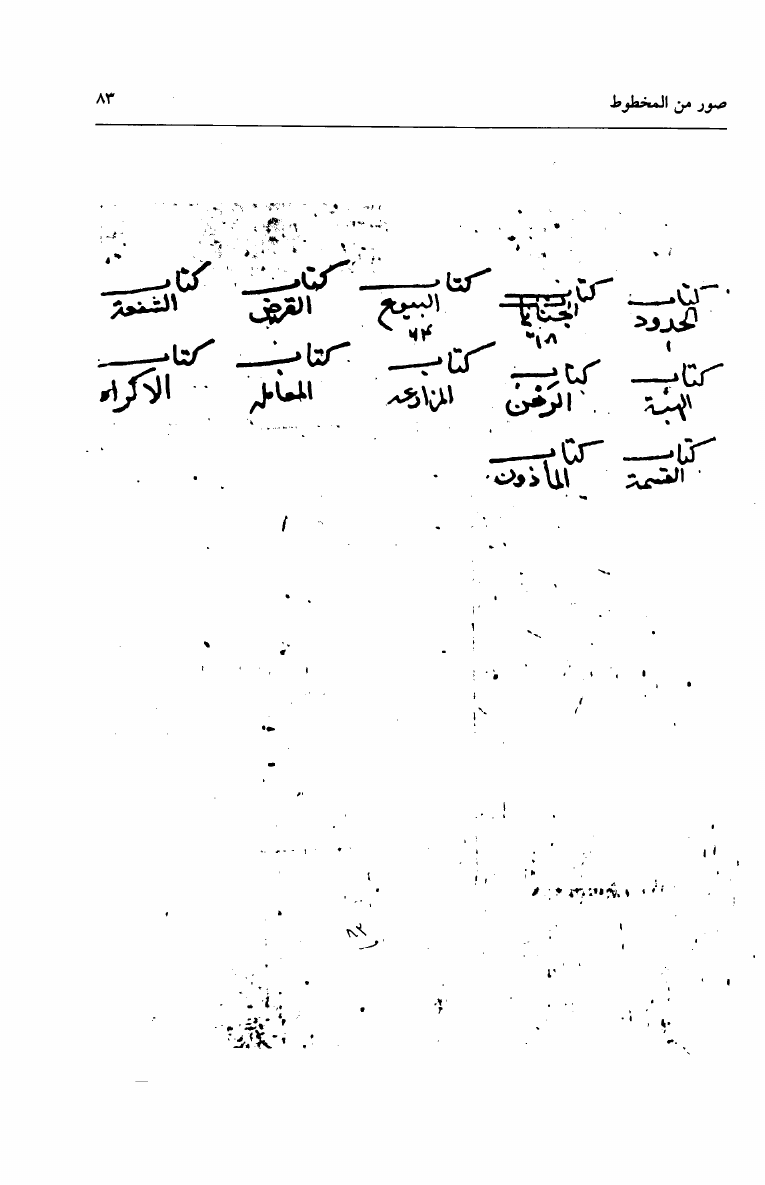 صور من المخطوط ٨٣
كتاب الحدود ١
كتاب الجنايات
كتاب البيوع ٦٤
كتاب القرض
كتاب الشفعة
كتاب الهبة
كتاب الرهن
كتاب المزارعه
كتاب المعامله
كتاب الاكراه
كتاب القسمة
كتاب المأذون